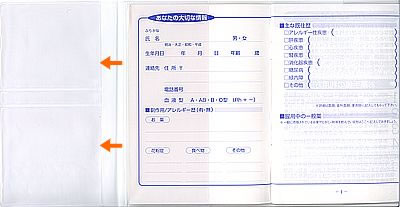 あなたの大切な情報
ふりがな
氏 名 男・女
明治・大正・昭和・平成
生年月日 年 月 日 年齢 歳
連絡先 住 所 〒
電話番号
血 液 型 A・AB・B・O型 (Rh + −)
■副作用/アレルギー歴(有・無)
お 薬
花粉症 食べ物 その他
■主な既往歴
□アレルギー性疾患( )
□肝疾患( )
□心疾患( )
□腎疾患( )
□消化器疾患( )
□糖尿病( )
□緑内障( )
□その他( )
■服用中の一般薬
- 1 -